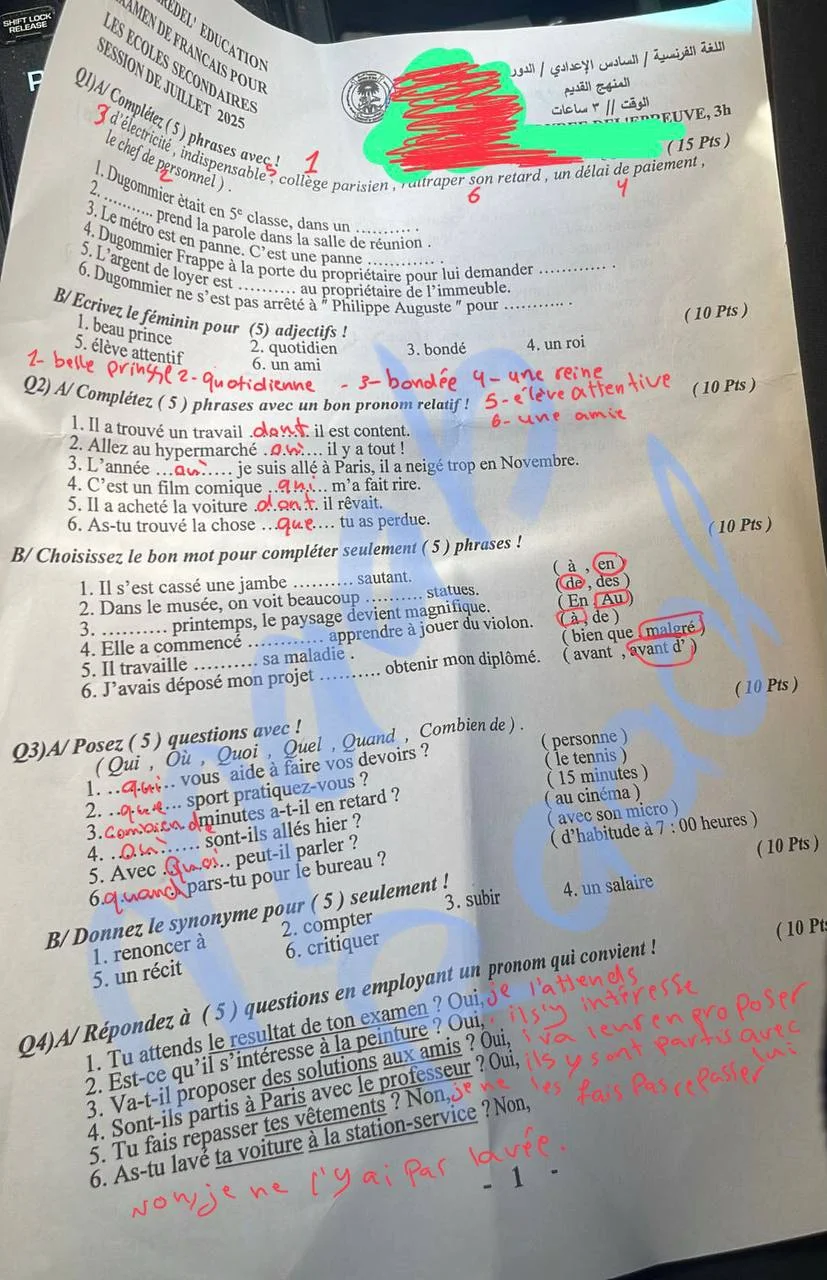 SHIFT LOCK
RELEASE
P
REDEL' EDUCATION
EXAMEN DE FRANCAIS POUR
LES ECOLES SECONDAIRES
SESSION DE JUILLET 2025
اللغة الفرنسية / السادس الإعدادي / الدور
المنهج القديم
الوقت // ٣ ساعات
EPREUVE, 3h
Q1)A/ Complétez ( 5 ) phrases avec !
(15 Pts )
1
3 d'électricité , indispensable 5 , collège parisien , rattraper son retard , un délai de paiement ,
le chef de personnel ) .
2
6
4
1. Dugommier ètait en 5e classe, dans un .......... .
2. .......... prend la parole dans la salle de réunion .
3. Le métro est en panne. C'est une panne ............ .
4. Dugommier Frappe à la porte du propriétaire pour lui demander ............ .
5. L'argent de loyer est .......... au propriétaire de l'immeuble.
6. Dugommier ne s'est pas arrêté à " Philippe Auguste " pour .......... .
B/ Ecrivez le féminin pour (5) adjectifs !
( 10 Pts )
1. beau prince
2. quotidien
3. bondé
4. un roi
5. élève attentif
6. un ami
1- belle 2- quotidienne - 3- bondée 4- une reine
5- élève attentive
6- une amie
Q2) A/ Complétez ( 5 ) phrases avec un bon pronom relatif !
( 10 Pts )
1. Il a trouvé un travail .dont. il est content.
2. Allez au hypermarché .où.... il y a tout !
3. L'année ...où..... je suis allé à Paris, il a neigé trop en Novembre.
4. C'est un film comique ..qui... m'a fait rire.
5. Il a acheté la voiture .dont. il rêvait.
6. As-tu trouvé la chose ...que.... tu as perdue.
B/ Choisissez le bon mot pour compléter seulement ( 5 ) phrases !
( 10 Pts )
1. Il s'est cassé une jambe .......... sautant.
( à , en )
2. Dans le musée, on voit beaucoup .......... statues.
( de , des )
3. .......... printemps, le paysage devient magnifique.
( En , Au )
4. Elle a commencé ............ apprendre à jouer du violon.
( à , de )
5. Il travaille .......... sa maladie .
( bien que , malgré )
6. J'avais déposé mon projet .......... obtenir mon diplômé.
( avant , avant d' )
Q3)A/ Posez ( 5 ) questions avec !
( 10 Pts )
( Qui , Où , Quoi , Quel , Quand , Combien de ) .
1. ..qui.. vous aide à faire vos devoirs ?
( personne )
2. ..... sport pratiquez-vous ?
( le tennis )
3. Combien de minutes a-t-il en retard ?
( 15 minutes )
4. ..où...... sont-ils allés hier ?
( au cinéma )
5. Avec .Quoi.. peut-il parler ?
( avec son micro )
6. quand pars-tu pour le bureau ?
( d'habitude à 7 : 00 heures )
B/ Donnez le synonyme pour ( 5 ) seulement !
( 10 Pts )
1. renoncer à
2. compter
3. subir
4. un salaire
5. un récit
6. critiquer
Q4)A/ Répondez à ( 5 ) questions en employant un pronom qui convient !
( 10 Pts
1. Tu attends le resultat de ton examen ? Oui, je l'attends
2. Est-ce qu'il s'intéresse à la peinture ? Oui, il s'y intéresse
3. Va-t-il proposer des solutions aux amis ? Oui, i va leur en proposer
4. Sont-ils partis à Paris avec le professeur ? Oui, ils y sont partis avec lui
5. Tu fais repasser tes vêtements ? Non, je ne les fais Pas repasser
6. As-tu lavé ta voiture à la station-service ? Non,
Non, je ne l'y ai Par lavée.
- 1 -